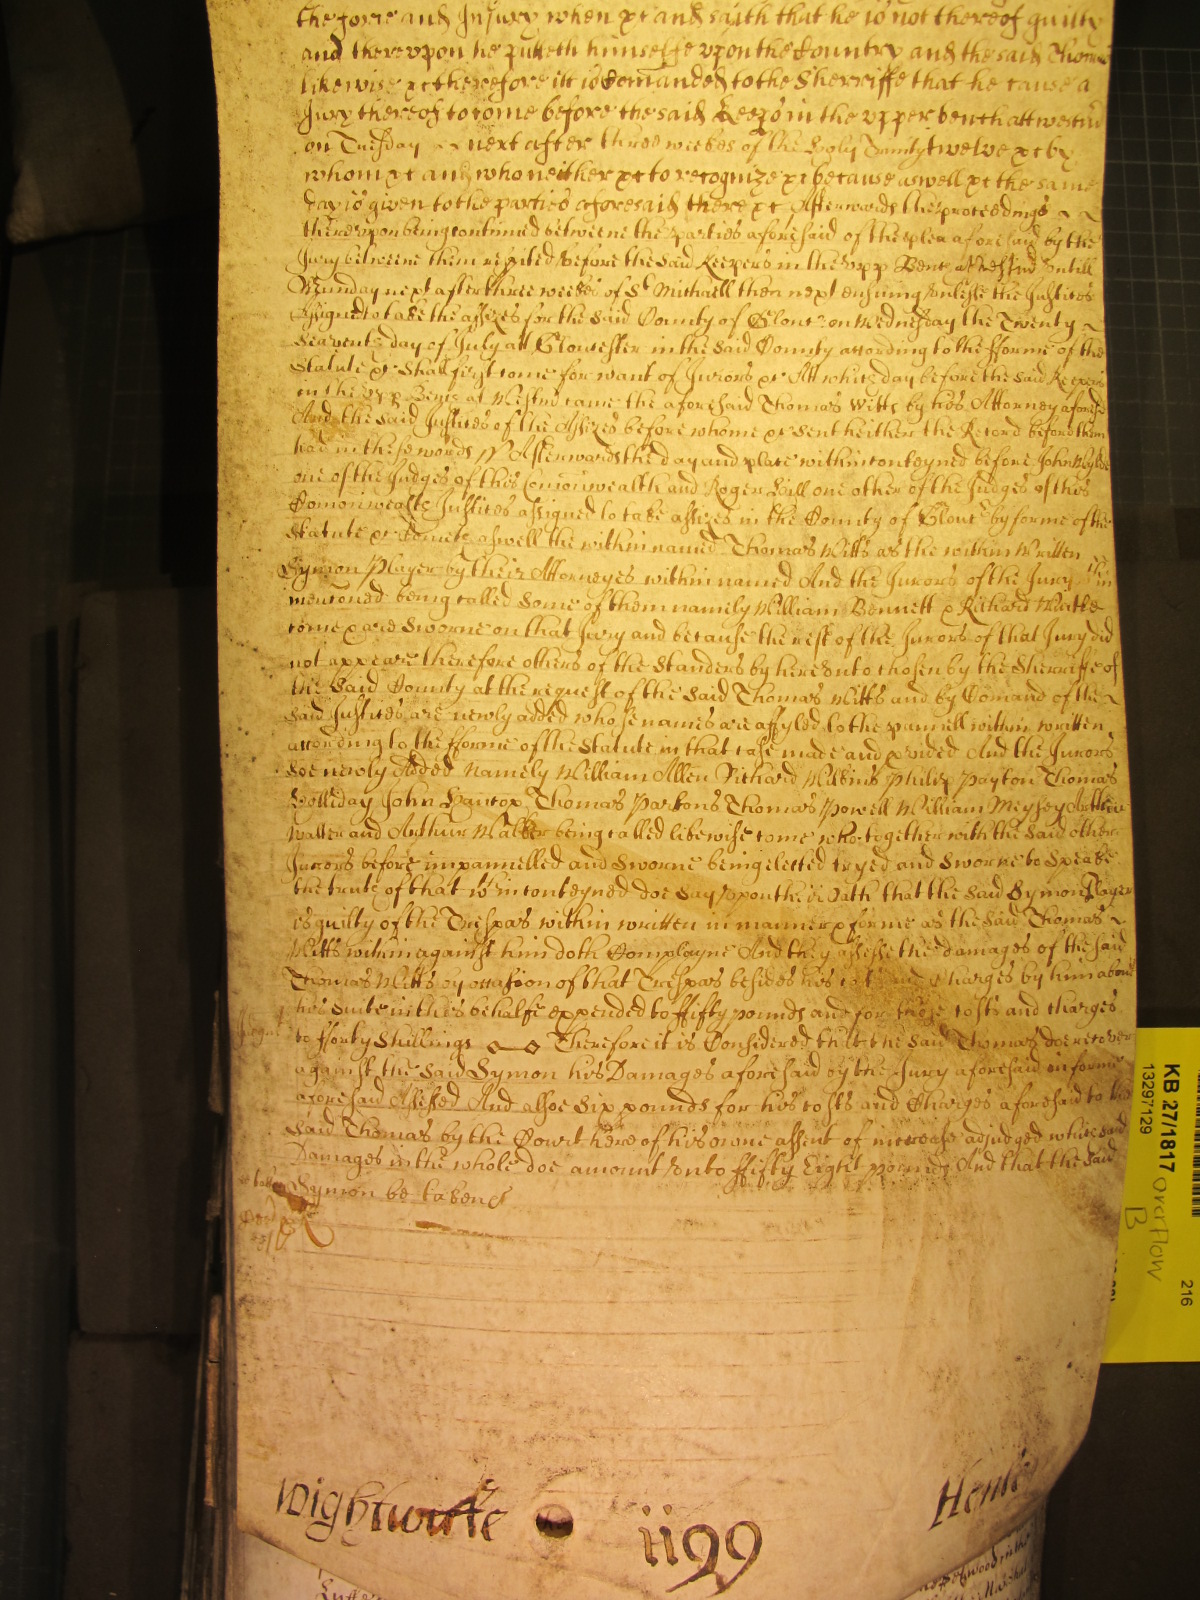 the force and Injury when &c and saith that he is not thereof guilty
and therevpon he putteth himselfe vpon the Country and the said Thomas
likewise &c therefore itt is Comanded to the Sherriffe that he cause a
Jury thereof to come before the said Keeps in the vpper bench att westmr
on Tuesday next after three weekes of the Holy Trinity twelve &c by
whom &c and who neither &c to recognize &c because aswell &c the same
day is given to the parties aforesaid there &c Afterwards the proceedings
therevpon being continued betweene the parties aforesaid of the plea aforesaid by the
Jury betweene them respited before the said Keepers in the vpp Bench at Westmr vntill
Munday next after three weekes of St Michaell then next ensuing vnlesse the Justices
Assigned to take the assizes for the said County of Glouc on Wednesday the Twenty
Seaventh day of July att Gloucester in the said County according to the fforme of the
Statute &c Shall first come for want of Jurors &c Att which day before the said Keepers
in the vpp Bench at Westmr came the aforesaid Thomas Witts by his Attorney aforesd
And the said Justices of the Assizes before whome &c sent heither the Record before them
had in these words ss Afterwards the day and place within conteyned before John Wylde
one of the Judges of this Comonwealth and Roger Hill one other of the Judges of this
Comonwealth Justices assigned to take assizes in the County of Glouc by forme of the
Statute &c Cometh aswell the within named Thomas Witts as the within written
Symon Player by their Attorneyes within named And the Jurors of the Jury
mencioned being called Some of them namely William Bennett & Richard
come & are Sworne on that Jury and because the rest of the Jurors of that Jury did
not appeare therefore others of the Standers by herevnto chosen by the Sherriffe of
the said County at the request of the said Thomas Witts and by Comand of the
said Justices are newly added whose names are affyled to the pannell within written
according to the fforme of the Statute in that case made and pvided And the Jurors
soe newly Added Namely William Allen Richard Wilkins Philip Payton Thomas
Holliday John Hancox Thomas Parsons Thomas Powell William Meysey Arthur
Walter and Arthur Walker being called likewise come who together with the said other
Jurors before impannelled and Sworne being elected tryed and Sworne to Speake
the truth of that within conteyned doe say vpon their Oath that the said Symon Player
is guilty of the Trespas within written in manner & forme as the said Thomas
Witts within against him doth Complayne And they assesse the damages of the said
Thomas Witts by occasion of that Trespas besides his costs and Charges by him about
his suite in this behalfe expended to ffifty pounds and for those costs and charges
to fforty Shillings Therefore it is Considered that the said Thomas doe recover
against the said Symon his Damages aforesaid by the Jury aforesaid in forme
aforesaid Assessed And alsoe Six pounds for his costs and Charges aforesaid to the
said Thomas by the Court here of his owne assent of increase adjudged which said
Damages in the whole doe amount vnto ffifty Eight pounds And that the said
Symon be taken &c
Wightwicke
1199
Henley
KB 27/1817 overflow
B
13297129
216